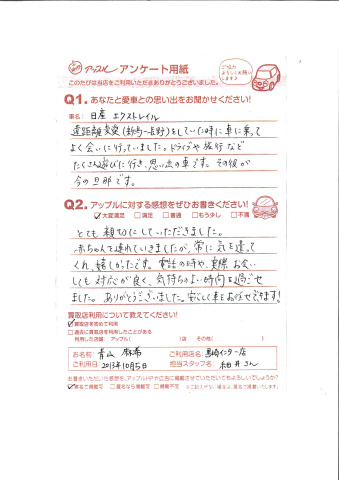 アップル アンケート用紙
ご協力よろしくお願いします♪
このたびは当店をご利用いただきありがとうございました。
Q1. あなたと愛車との思い出をお聞かせください!
車名: 日産 エクストレイル
遠距離恋愛(新潟-長野)をしていた時に車に乗って
よく会いに行っていました。ドライブや旅行など
たくさん遊びに行き、思い出の車です。その彼が
今の旦那です。
Q2. アップルに対する感想をぜひお書きください!
☑大変満足 □満足 □普通 □もう少し □不満
とても親切にしていただきました。
赤ちゃんを連れていきましたが、常に気を遣って
くれ、嬉しかったです。電話の時や、実際お会い
しても対応が良く、気持ちのよい時間を過ごせ
ました。ありがとうございました。安心して車をお任せできます!
買取店利用について教えてください!
☑買取店を初めて利用
□過去に買取店を利用したことがある
利用した店舗: アップル( )店 その他( )
お名前: 青山 麻希 ご利用店名: 黒崎インター店
ご利用日 2013年10月5日 担当スタッフ名: 細井さん
お書きいただいた感想を、アップルHPや広告に掲載させていただいてもよろしいでしょうか?
☑実名で掲載可 □匿名なら掲載可 □掲載不可